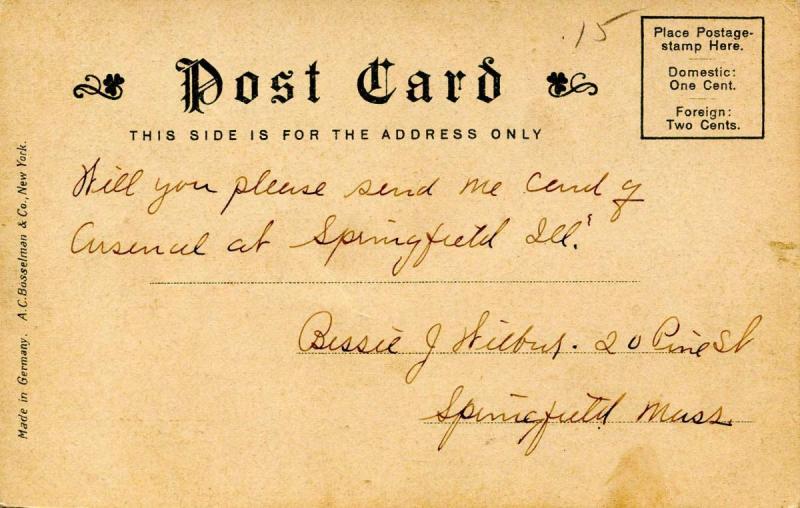 .15
Place Postage-
stamp Here.
Domestic:
One Cent.
Foreign:
Two Cents.
Post Card
THIS SIDE IS FOR THE ADDRESS ONLY
Made in Germany. A.C. Bosselman & Co., New York.
Will you please send me Card of
Arsenal at Springfield Ill.
Bessie J Wilbur. 20 Pine St
Springfield Mass.